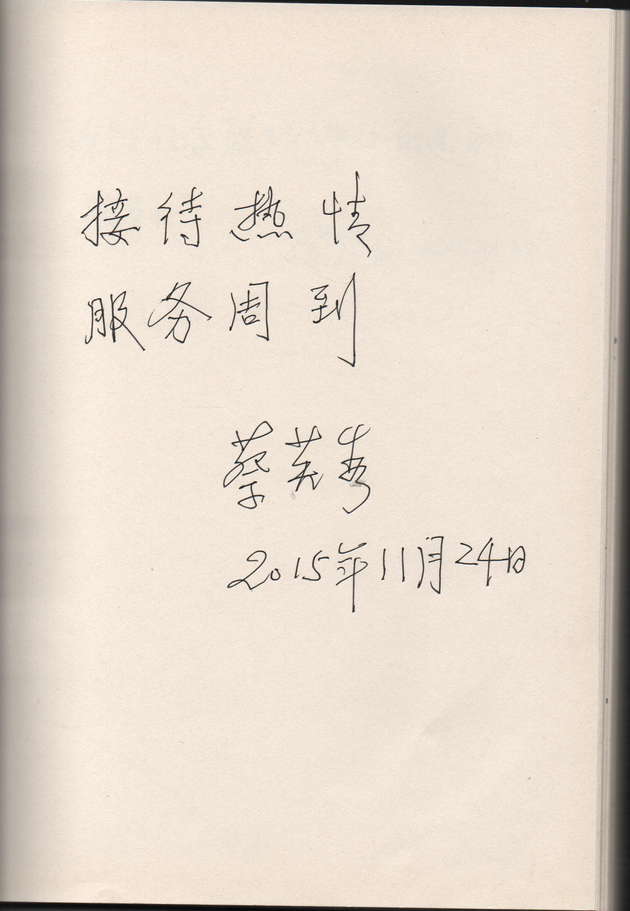 接待热情
服务周到
蔡芙秀
2015年11月24日